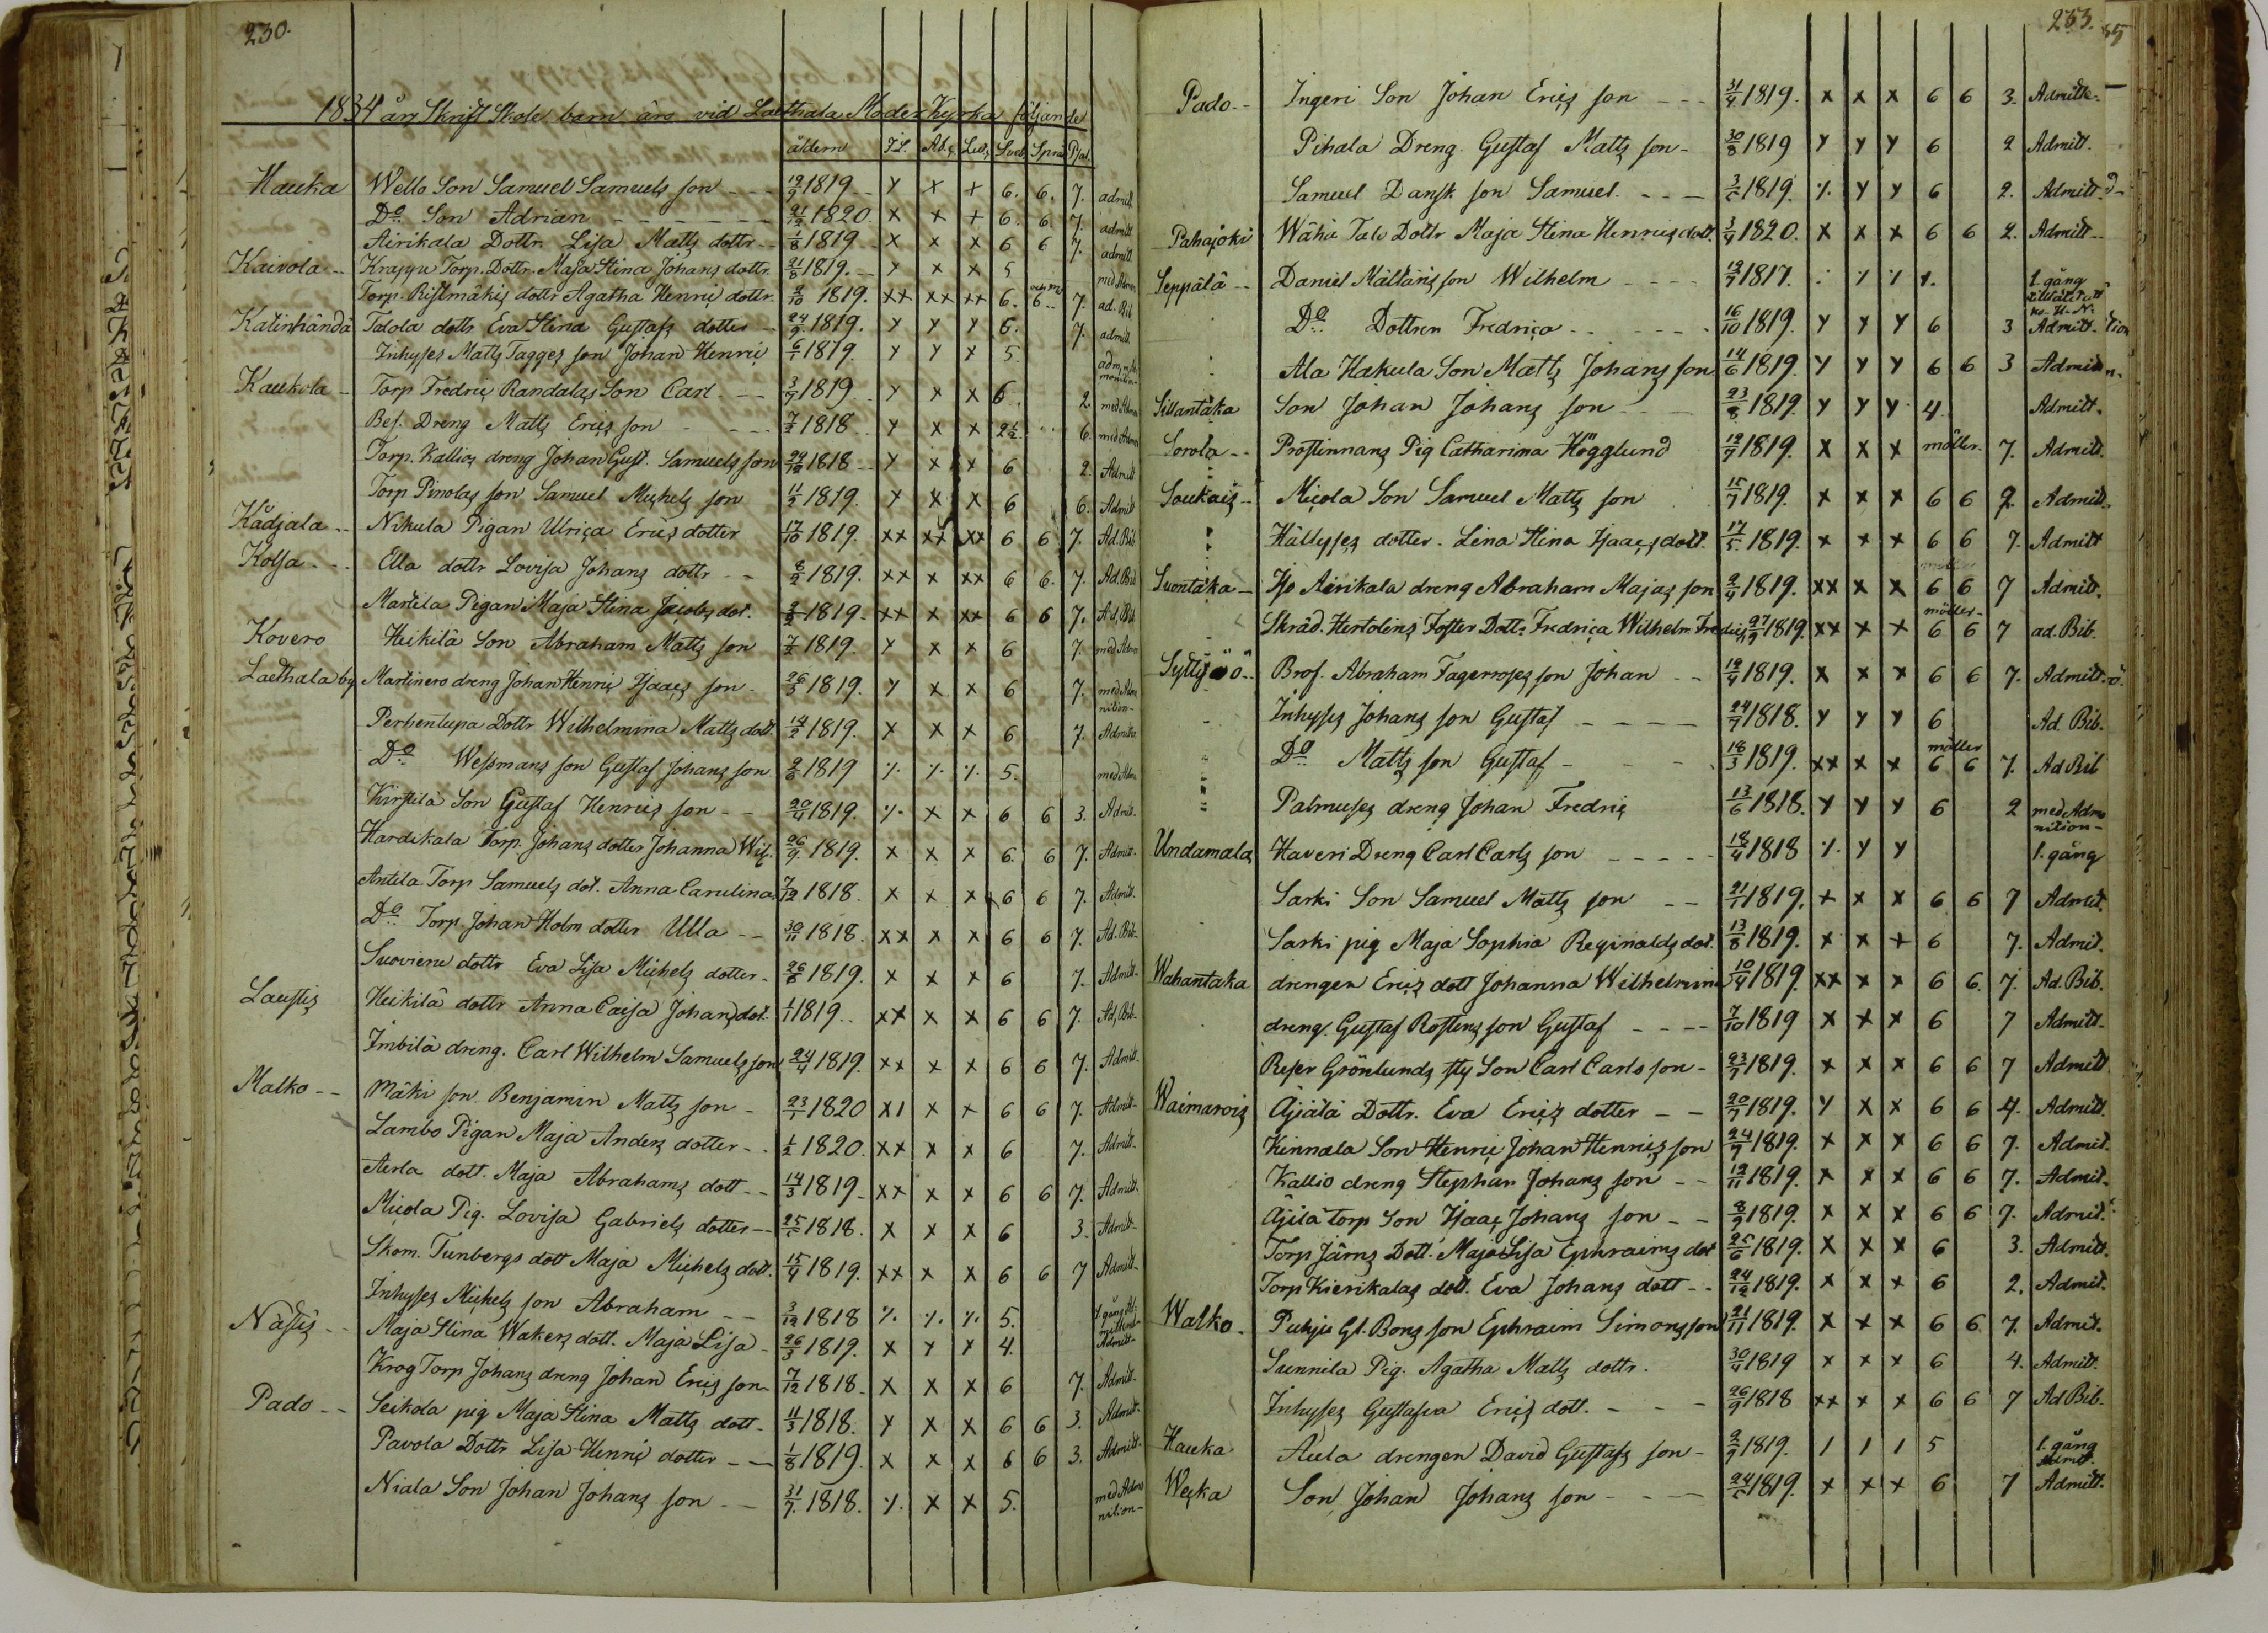 230.
1834 års Skrift Skole barn äro vid Laethala Moder Kyrka följande
åldern I.L. Ab.ç. Lill. Sveb. Spm Psal.
Hauka Wello Son Samuel Samuels son - - - 19/9 1819 - x x x 6. 6. 7. admitt
Do Son Adrian - - - - - - 21/12 1820. x x x 6. 6 7. admitt
Airikala Dottr. Lisa Matts dottr - - 1/8 1819 x x x 6 6 7. admitt
Kaivola - - Krapyu Torp. Dottr. Maja Stina Johans dottr. 21/8 1819. - x x x 5 med Admon
Torp. Ristmäkis dottr Agatha Henric dottr. 2/10 1819. xx xx xx 6. 6 - - 7. ad. Bib
Katinhändä Talola dottr Eva Stina Gustafs dotter - 24/9 1819. x x x 6. 7. admitt
Inhyses Matts Tagges son Johan Henric 6/1 1819. x x x 5.
Kaukola - Torp Fredric Randalas Son Carl. - - 3/9 1819 x x x 6 2 med Admon
Bes. Dreng Matts Erics son - - - - 7/2 1818 x x x 2½ 6. med Admon
Torp. Kallios dreng Johan Gust. Samuels son 24/12 1818 - - x x x 6 2. Admitt
Torp Pinolas son Samuel Michels son 11/2 1819. x x x 6 6. Admitt
Kådjala - - Nikula Pigan Ulrica Erics dotter 17/10 1819. xx xx xx 6 6 7. Ad. Bib
Kolsa - - - Ella dottr Lovisa Johans dottr - - 8/2 1819. xx x xx 6 6. 7. Ad. Bib
Martila Pigan Maja Stina Jacobs dot. 2/2 1819 - xx x xx 6 6 7. Ad. Bib
Kovero Heikilä Son Abraham Matts son 7/2 1819. x x x 6 7. med Admon
Laethala by Martinero dreng Johan Henric Isaacs son. 26/3 1819. x x x 6 7. med Admonition -
Perbentupa Dottr Wilhelmina Matts dott. 14/2 1819. x x x 6 7. Admitt.
Do Wessmans son Gustaf Johans son 2/6 1819 ./. ./. ./. 5. med Adm
Kirstilä Son Gustaf Henrics son - - 20/4 1819. ./. x x 6 6 3. Admit.
Hardikala Torp. Johans dotter Johanna Wil. 26/9 1819. x x x 6. 6 7. Admitt.
Antila Torp Samuels dot. Anna Carolina 7/12 1818. x x x 6 6 7. Admit.
Do Torp. Johan Holm dotter Ulla - - 30/11 1818. xx x x 6 6 7. Ad. Bib.
Suovieru dottr Eva Lisa Michels dotter - 26/8 1819. x x x 6 7. Admitt-
Laustis Heikilä dottr Anna Caisa Johans dot. 1/1 1819. xx x x 6 6 7. Ad. Bib.
Imbilä dreng. Carl Wilhelm Samuels son 24/4 1819. xx x x 6 6 7. Admit.
Malko - - Mäki son Benjamin Matts son - 23/1 1820 x1 x x 6 6 7. Admitt-
Lambo Pigan Maja Anders dotter - - 1/2 1820. xx x x 6 7. Admitt.
Aerla dott. Maja Abrahams dott - - 14/3 1819 - xx x x 6 6 7. Admitt.
Micola Pig. Lovisa Gabriels dotter - - 25/5 1818. x x x 6 3. Admitt-
Skom. Tunbergs dott Maja Michels dott. 15/4 1819. xx x x 6 6 7 Admitt-
Inhyses Michels son Abraham - - 3/12 1818 ./. ./. ./. 5.
Nästis - - Maja Stina Wakers dott. Maja Lisa - 26/3 1819. x x x 4. Admitt-
Krog Torp Johans dreng Johan Erics son - 7/12 1818 - x x x 6 7. Admitt-
Pado - - Seikola pig Maja Stina Matts dott - 11/3 1818. x x x 6 6 3. Admit.
Pavola Dottr Lisa Henric dotter - - 1/8 1819. x x x 6 6 3. Admitt.
Niala Son Johan Johans son - - 31/7 1818. ./. x x 5. med Admonition -
233.
Pado - - Ingeri Son Johan Erics son - - - 31/4 1819. x x x 6 6 3. Admitt-
Pihala Dreng. Gustaf Matts son - 30/8 1819 x x x 6 2 Admitt.
Samuel Dansk son Samuel. - - - 3/5 1819. ./. x x 6 2. Admitt-
Pahajoki Wähä Talo Dottr Maja Stina Henrics dott. 3/4 1820. x x x 6 6 2. Admitt-
Seppälä - - Daniel Mältäris son Wilhelm - - - 19/7 1817. ./. ./. ./. 1. gång
Do Dottren Fredrica - - - - - 16/10 1819. x x x 6 3 Admitt-
Ala Hakula Son Matts Johans son 14/6 1819. x x x 6 6 3 Admit
Sillantaka Son Johan Johans son - - - 23/8 1819. x x x 4. Admitt.
Sorola - - Prostinnans Pig Catharina Högglund 12/9 1819. x x x möller. 7. Admitt.
Soukais - - Micola Son Samuel Matts son 15/7 1819. x x x 6 6 2. Admitt-
Hällyses dotter. Lina Stina Isaacs dott. 17/5 1819. x x x 6 6 7. Admitt
Suontaka - Iso Airikala dreng Abraham Majas son 2/4 1819. xx x x 6 6 7 Admitt.
Skräd. Hertolins Foster Dottr Fredrica Wilhelm. Fredrics 27/9 1819. xx x x möller- 6 6 7 ad. Bib.
Brof. Abraham Fagerroses son Johan - - 19/4 1819. x x x 6 6 7. Admitt.
Inhyses Johans son Gustaf - - - - 24/7 1818. x x x 6 Ad. Bib.
Do Matts son Gustaf - - - 18/3 1819. xx x x möller 6 6 7. Ad Bib
Palmuses dreng Johan Fredric 13/6 1818. x x x 6 2 med Admonition -
Undamala Haveri Dreng Carl Carls son - - - - - 18/4 1818 ./. x x 1. gång
Sarki Son Samuel Matts son - - 21/1 1819. x x x 6 6 7 Admit.
Sarki pig Maja Sophia Reginalds dot. 13/8 1819. x x x 6 7. Admit.
Wahantaka drengen Erics dott Johanna Wilhelmina 10/4 1819. xx x x 6 6. 7. Ad. Bib.
dreng. Gustaf Rostens son Gustaf - - - - 7/10 1819 x x x 6 7 Admitt-
Reser Grönlunds sty Son Carl Carls son - 23/7 1819. x x x 6 6 7 Admitt
Waimarois Äjälä Dottr. Eva Erics dotter - - 20/7 1819. x x x 6 6 4. Admitt.
Kinnala Son Henric Johan Henrics son 24/9 1819. x x x 6 6 7. Admit.
Kallio dreng Stephan Johans son - - 19/11 1819. x x x 6 6 7. Admit.
Äjilä Torp Son Isaac Johans son - - 8/9 1819. x x x 6 6 7. Admit.
Torp Järns Dott. Maja Lisa Ephraims dot 25/6 1819. x x x 6 3. Admitt.
Torp Kierikalas dott. Eva Johans dott - - 24/12 1819. x x x 6 2. Admit.
Walko - Puhju Gl. Bons son Ephraim Simons son 21/11 1819. x x x 6 6. 7. Admit.
Sunnila Pig. Agatha Matts dottr. 30/4 1819 x x x 6 4. Admitt.
Inhyses Gustafva Erics dott. - - - 26/9 1818 xx x x 6 6 7 Ad Bib.
Hauka Aula drengen David Gustafs son - 2/9 1819. 1 1 1 5 1. gång
Wecka Son Johan Johans son - - - 24/5 1819. x x x 6 7 Admitt.